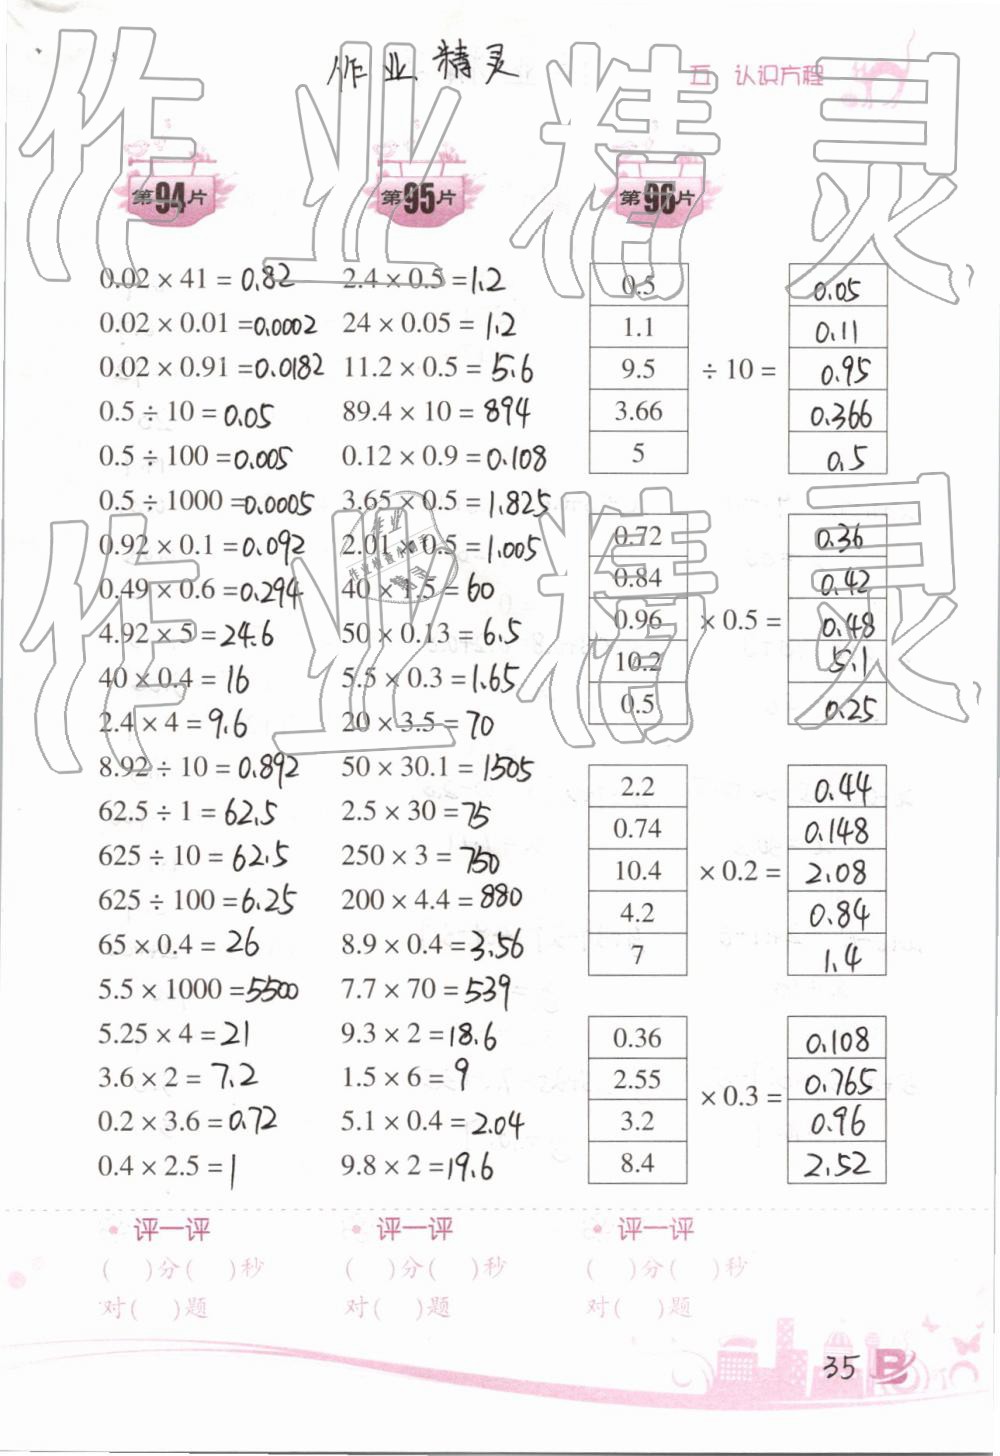 作业精灵
五 认识方程
第94片
0.02 × 41 = 0.82
0.02 × 0.01 = 0.0002
0.02 × 0.91 = 0.0182
0.5 ÷ 10 = 0.05
0.5 ÷ 100 = 0.005
0.5 ÷ 1000 = 0.0005
0.92 × 0.1 = 0.092
0.49 × 0.6 = 0.294
4.92 × 5 = 24.6
40 × 0.4 = 16
2.4 × 4 = 9.6
8.92 ÷ 10 = 0.892
62.5 ÷ 1 = 62.5
625 ÷ 10 = 62.5
625 ÷ 100 = 6.25
65 × 0.4 = 26
5.5 × 1000 = 5500
5.25 × 4 = 21
3.6 × 2 = 7.2
0.2 × 3.6 = 0.72
0.4 × 2.5 = 1
评一评
( )分( )秒
对( )题
第95片
2.4 × 0.5 = 1.2
24 × 0.05 = 1.2
11.2 × 0.5 = 5.6
89.4 × 10 = 894
0.12 × 0.9 = 0.108
3.65 × 0.5 = 1.825
2.01 × 0.5 = 1.005
40 × 1.5 = 60
50 × 0.13 = 6.5
5.5 × 0.3 = 1.65
20 × 3.5 = 70
50 × 30.1 = 1505
2.5 × 30 = 75
250 × 3 = 750
200 × 4.4 = 880
8.9 × 0.4 = 3.56
7.7 × 70 = 539
9.3 × 2 = 18.6
1.5 × 6 = 9
5.1 × 0.4 = 2.04
9.8 × 2 = 19.6
评一评
( )分( )秒
对( )题
第96片
0.5 0.05
1.1 0.11
9.5 ÷ 10 = 0.95
3.66 0.366
5 0.5
0.72 0.36
0.84 0.42
0.96 × 0.5 = 0.48
10.2 5.1
0.5 0.25
2.2 0.44
0.74 0.148
10.4 × 0.2 = 2.08
4.2 0.84
7 1.4
0.36 0.108
2.55 0.765
× 0.3 =
3.2 0.96
8.4 2.52
评一评
( )分( )秒
对( )题
35
B
作业精灵
作业精灵